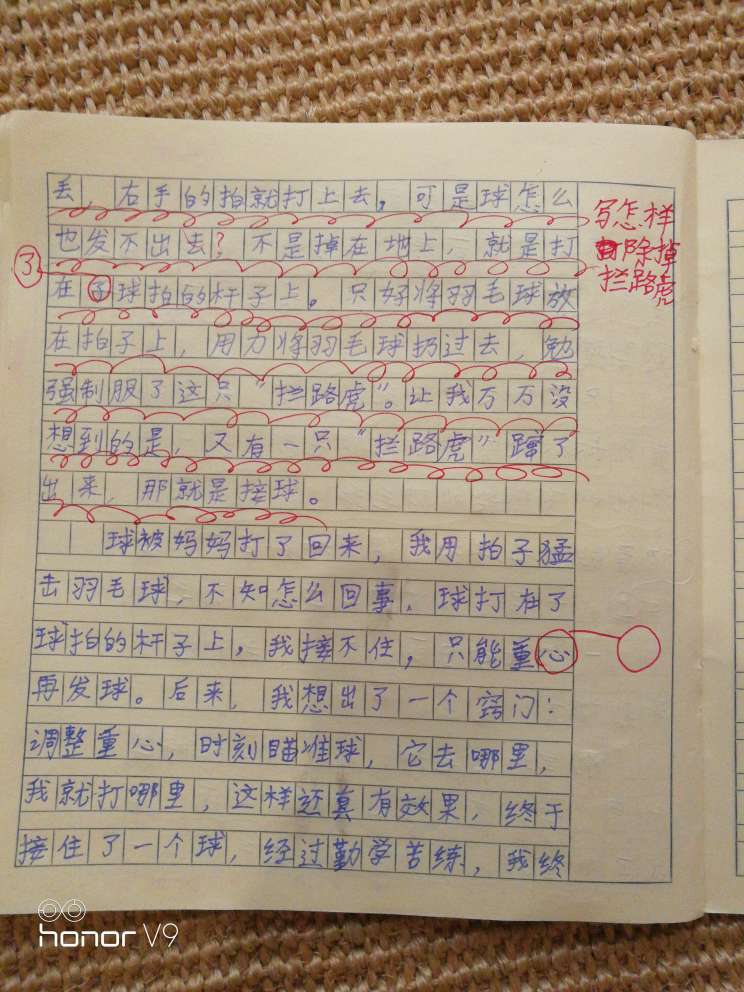 丢，右手的拍就打上去，可是球怎么
也发不出去？不是掉在地上，就是打
在了球拍的杆子上。只好将羽毛球放
在拍子上，用力将羽毛球扔过去，勉
强制服了这只“拦路虎”。让我万万没
想到的是，又有一只“拦路虎”蹿了
出来，那就是接球。
球被妈妈打了回来，我用拍子猛
击羽毛球，不知怎么回事，球打在了
球拍的杆子上，我接不住，只能重心
再发球。后来，我想出了一个窍门：
调整重心，时刻瞄准球，它去哪里，
我就打哪里，这样还真有效果，终于
接住了一个球，经过勤学苦练，我终
写怎样
除掉
拦路虎
3
honor V9